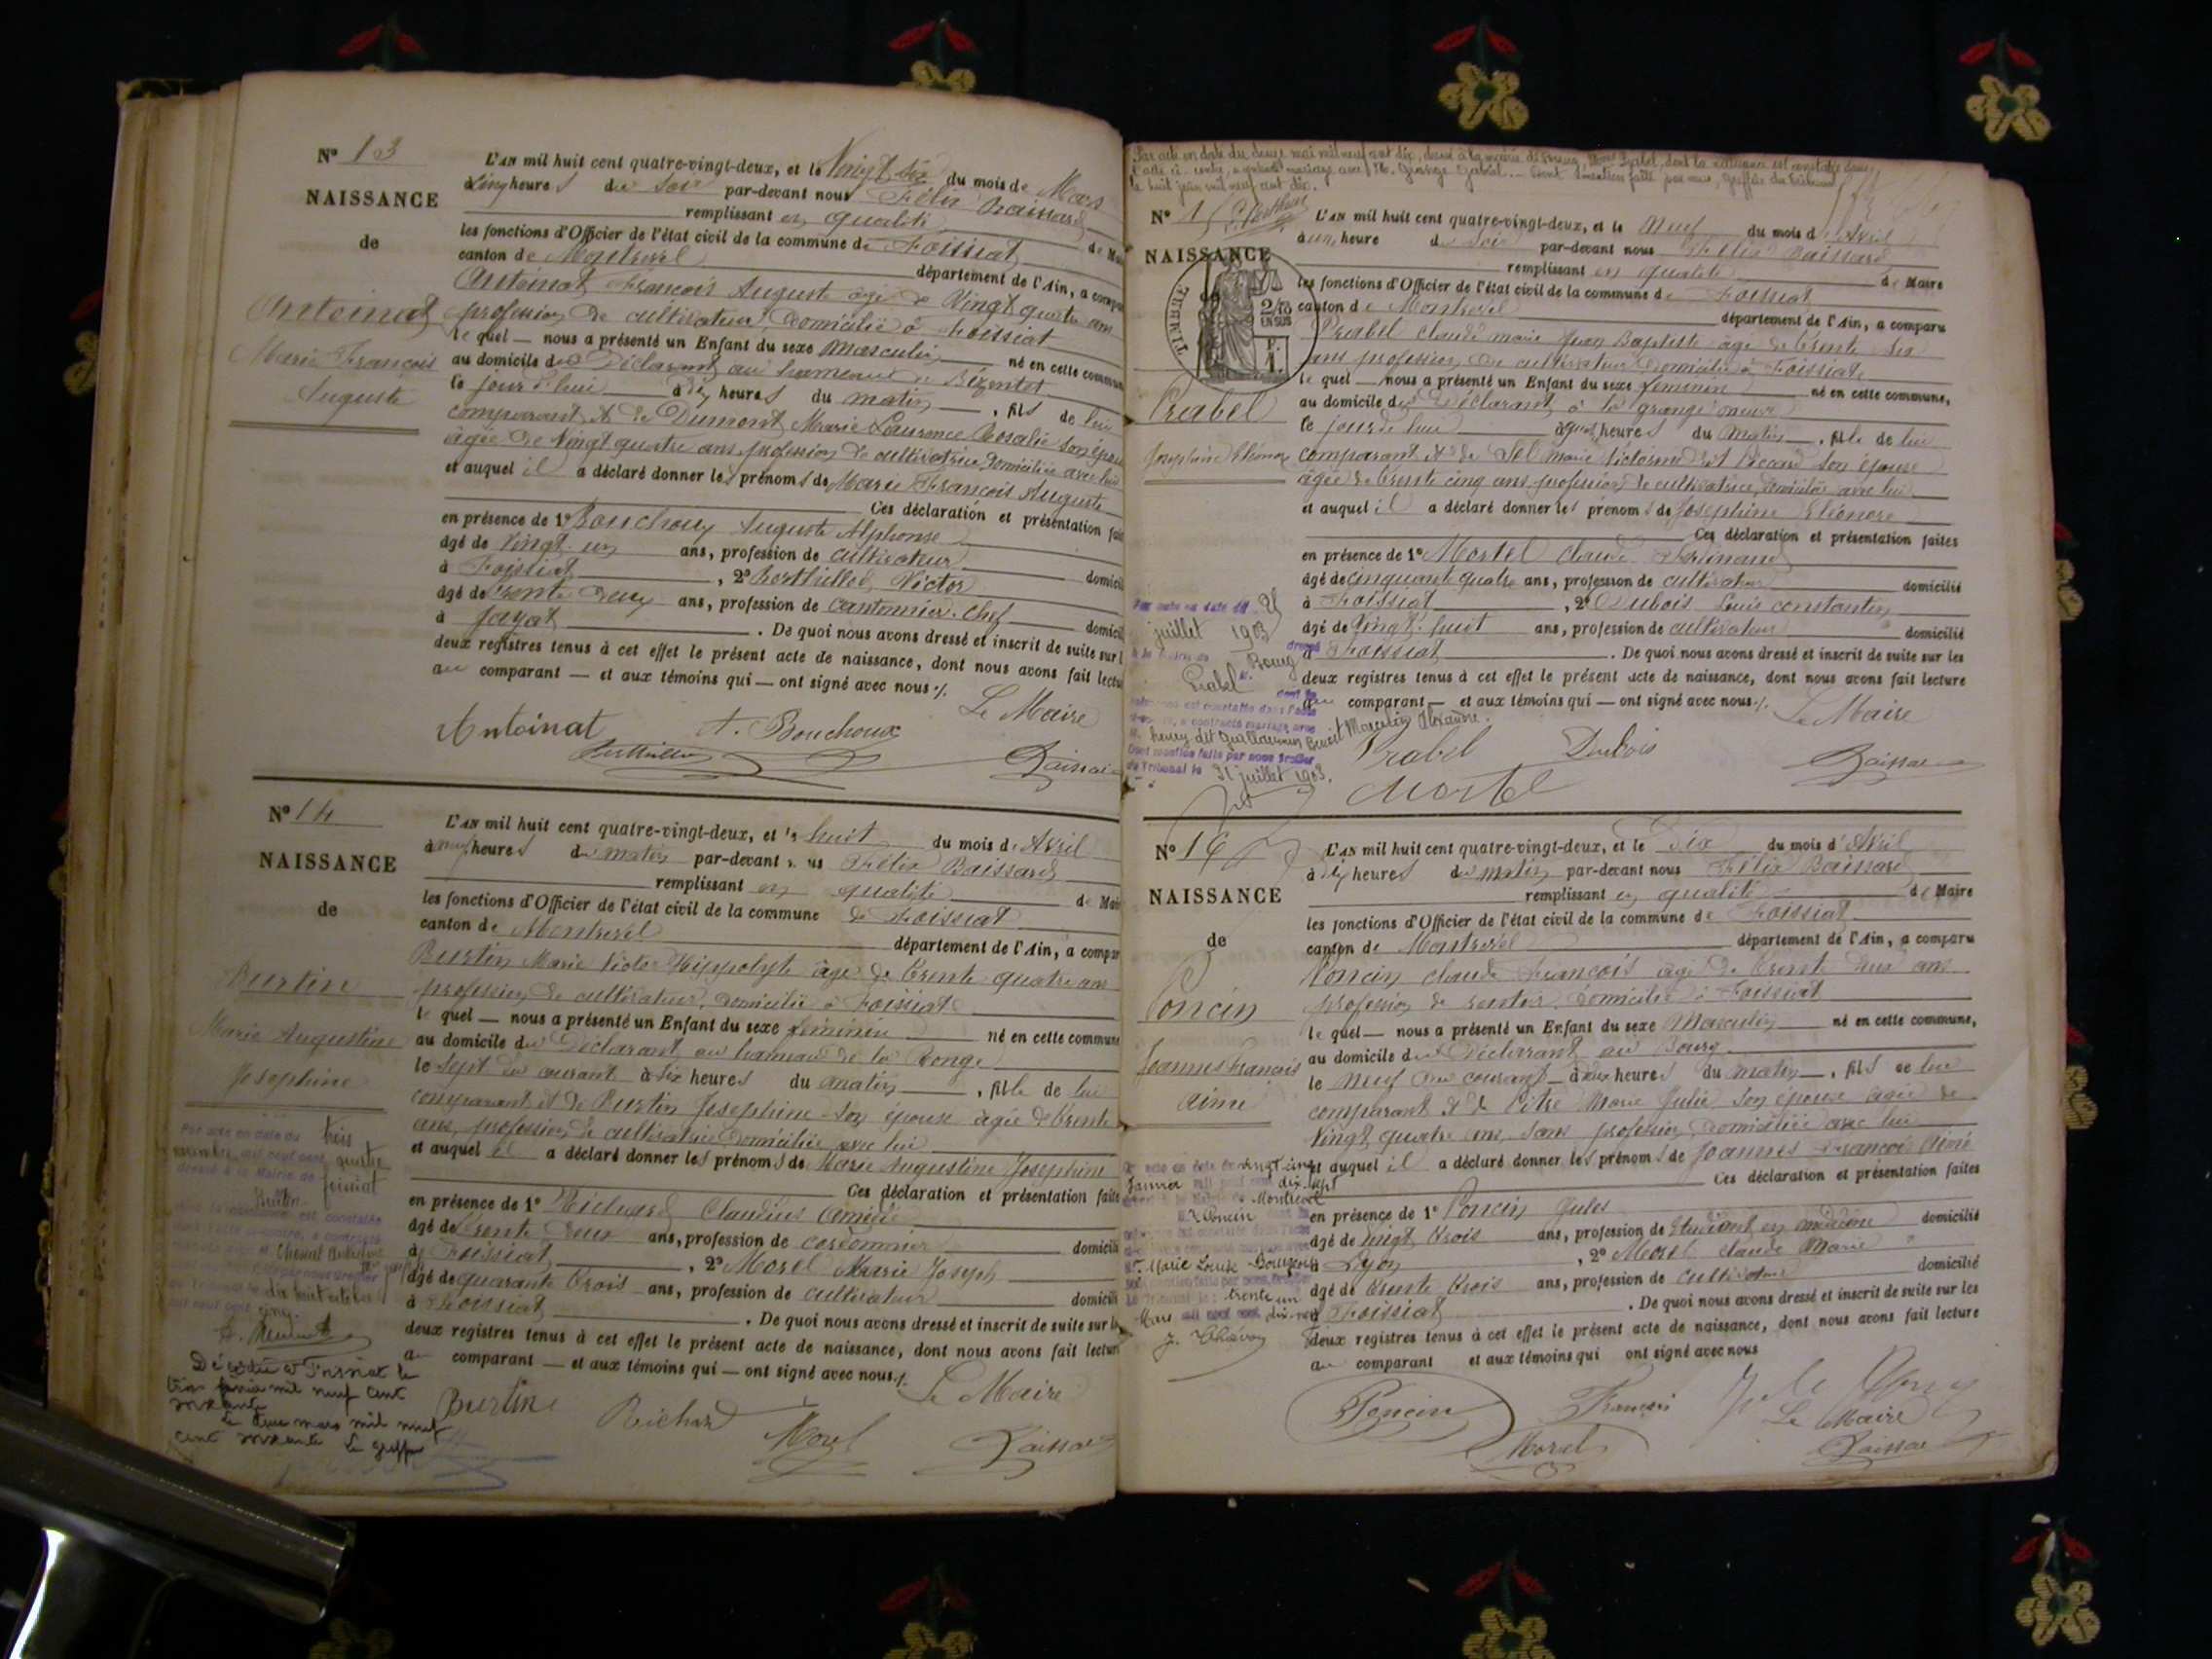 N° 13
NAISSANCE
de
Antoinat
Marie François
Auguste
L'AN mil huit cent quatre-vingt-deux, et le Vingt six du mois de Mars
à cinq heures du soir par-devant nous Félix Baissard
remplissant en qualité de Mai
les fonctions d'Officier de l'état civil de la commune de Foissiat
canton de Montrevel département de l'Ain, a compa
Antoinat François Auguste âgé de Vingt quatre ans
profession de cultivateur, domicilié à Foissiat
le quel — nous a présenté un Enfant du sexe masculin né en cette commun
au domicile du Déclarant au hameau de Bézentet
le jour d'hui à dix heures du matin, fils de lui
comparant et de Dumont Marie Laurence Rosalie son épou
âgée de vingt quatre ans profession de cultivatrice domiciliée avec lui
et auquel il a déclaré donner les prénoms de Marie François Auguste
Ces déclaration et présentation fait
en présence de 1° Bouchoux Auguste Alphonse
âgé de Vingt un ans, profession de cultivateur domicil
à Foissiat, 2° Berthillod Victor
âgé de trente deux ans, profession de cantonnier chef domicil
à Jayat. De quoi nous avons dressé et inscrit de suite sur l
deux registres tenus à cet effet le présent acte de naissance, dont nous avons fait lectu
au comparant — et aux témoins qui — ont signé avec nous./.
Le Maire
Antoinat A. Bouchoux
Baissard
N° 14
NAISSANCE
de
Burtin
Marie Augustine
Josephine
L'AN mil huit cent quatre-vingt-deux, et le huit du mois d'Avril
à neuf heures du matin par-devant nous Félix Baissard
remplissant en qualité de Mai
les fonctions d'Officier de l'état civil de la commune de Foissiat
canton de Montrevel département de l'Ain, a compar
Burtin Marie Victor Hippolyte âgé de trente quatre ans
profession de cultivateur, domicilié à Foissiat
le quel — nous a présenté un Enfant du sexe féminin né en cette commune
au domicile du Déclarant au hameau de la Ronge
le sept du courant à six heures du matin, fille de lui
comparant et de Burtin Josephine son épouse âgée de trente
ans, profession de cultivatrice domiciliée avec lui
et auquel il a déclaré donner les prénoms de Marie Augustine Josephine
Ces déclaration et présentation faite
en présence de 1° Richard Claudius Amédée
âgé de trente deux ans, profession de cordonnier domicili
à Foissiat, 2° Morel Marie Joseph
âgé de quarante trois ans, profession de cultivateur domicili
à Foissiat. De quoi nous avons dressé et inscrit de suite sur le
deux registres tenus à cet effet le présent acte de naissance, dont nous avons fait lectur
au comparant — et aux témoins qui — ont signé avec nous./.
Le Maire
Burtin Richard Morel Baissard
Par acte en date du trois
quatre
dressé à la Mairie de Foissiat
Burtin
dix huit octobre
mil neuf cent cinq.
Décédée à Foissiat le
mil neuf cent
soixante
mars mil neuf
cent soixante Le greffier
Par acte en date du douze mai mil neuf cent dix, dressé à la mairie de Bourg, Prabel, dont la naissance est constatée dans
l'acte ci-contre, a contracté mariage avec Gabriel... Dont mention faite par nous, greffier du Tribunal
le huit juin mil neuf cent dix.
N° 15
NAISSANCE
de
TIMBRE
2/10
EN SUS
Prabel
Josephine Eléonore
L'AN mil huit cent quatre-vingt-deux, et le neuf du mois d'Avril
à une heure du soir par-devant nous Félix Baissard
remplissant en qualité de Maire
les fonctions d'Officier de l'état civil de la commune de Foissiat
canton de Montrevel département de l'Ain, a comparu
Prabel Claude marie Jean Baptiste âgé de trente six
ans profession de cultivateur domicilié à Foissiat
le quel — nous a présenté un Enfant du sexe féminin né en cette commune,
au domicile du Déclarant à la grange neuve
le jour de hui heures du matin, fille de lui
comparant et de Sel marie Victorine dit Piccard son épouse
âgée de trente cinq ans profession de cultivatrice, domiciliée avec lui
et auquel il a déclaré donner les prénoms de Josephine Eléonore
Ces déclaration et présentation faites
en présence de 1° Mortel Claude Ferdinand
âgé de cinquante quatre ans, profession de cultivateur domicilié
à Foissiat, 2° Dubois Louis constantin
âgé de Vingt huit ans, profession de cultivateur domicilié
à Foissiat. De quoi nous avons dressé et inscrit de suite sur les
deux registres tenus à cet effet le présent acte de naissance, dont nous avons fait lecture
au comparant — et aux témoins qui — ont signé avec nous./.
Le Maire
Prabel Dubois Baissard
Mortel
Par acte en date du 25
juillet 1903 dressé
Bourg
Prabel dont la
naissance est constatée dans l'acte
ci-contre, a contracté mariage avec
M. Benoit Marcelin Alexandre.
Dont mention faite par nous Greffier
du Tribunal le 31 juillet 1903.
N° 16
NAISSANCE
de
Poncin
Joannes François
aimé
L'AN mil huit cent quatre-vingt-deux, et le Dix du mois d'Avril
à dix heures du matin par-devant nous Félix Baissard
remplissant en qualité de Maire
les fonctions d'Officier de l'état civil de la commune de Foissiat
canton de Montrevel département de l'Ain, a comparu
Poncin claude François âgé de trente deux ans
profession de rentier domicilié à Foissiat
le quel — nous a présenté un Enfant du sexe Masculin né en cette commune,
au domicile du Déclarant au Bourg
le neuf du courant à heures du matin, fils de lui
comparant et de Pitre Marie Julie son épouse âgée de
vingt quatre ans sans profession domiciliée avec lui
et auquel il a déclaré donner les prénoms de Joannes François Aimé
Ces déclaration et présentation faites
en présence de 1° Poncin Jules
âgé de vingt trois ans, profession de Etudiant en médecine domicilié
à Lyon, 2° Morel claude Marie
âgé de trente trois ans, profession de cultivateur domicilié
à Foissiat. De quoi nous avons dressé et inscrit de suite sur les
deux registres tenus à cet effet le présent acte de naissance, dont nous avons fait lecture
au comparant et aux témoins qui ont signé avec nous
Poncin
Le Maire
Morel Baissard
vingt cinq
Janvier mil neuf cent dix-sept
Montrevel
Poncin
Marie Louise
trente un
Mars mil neuf cent dix-sept